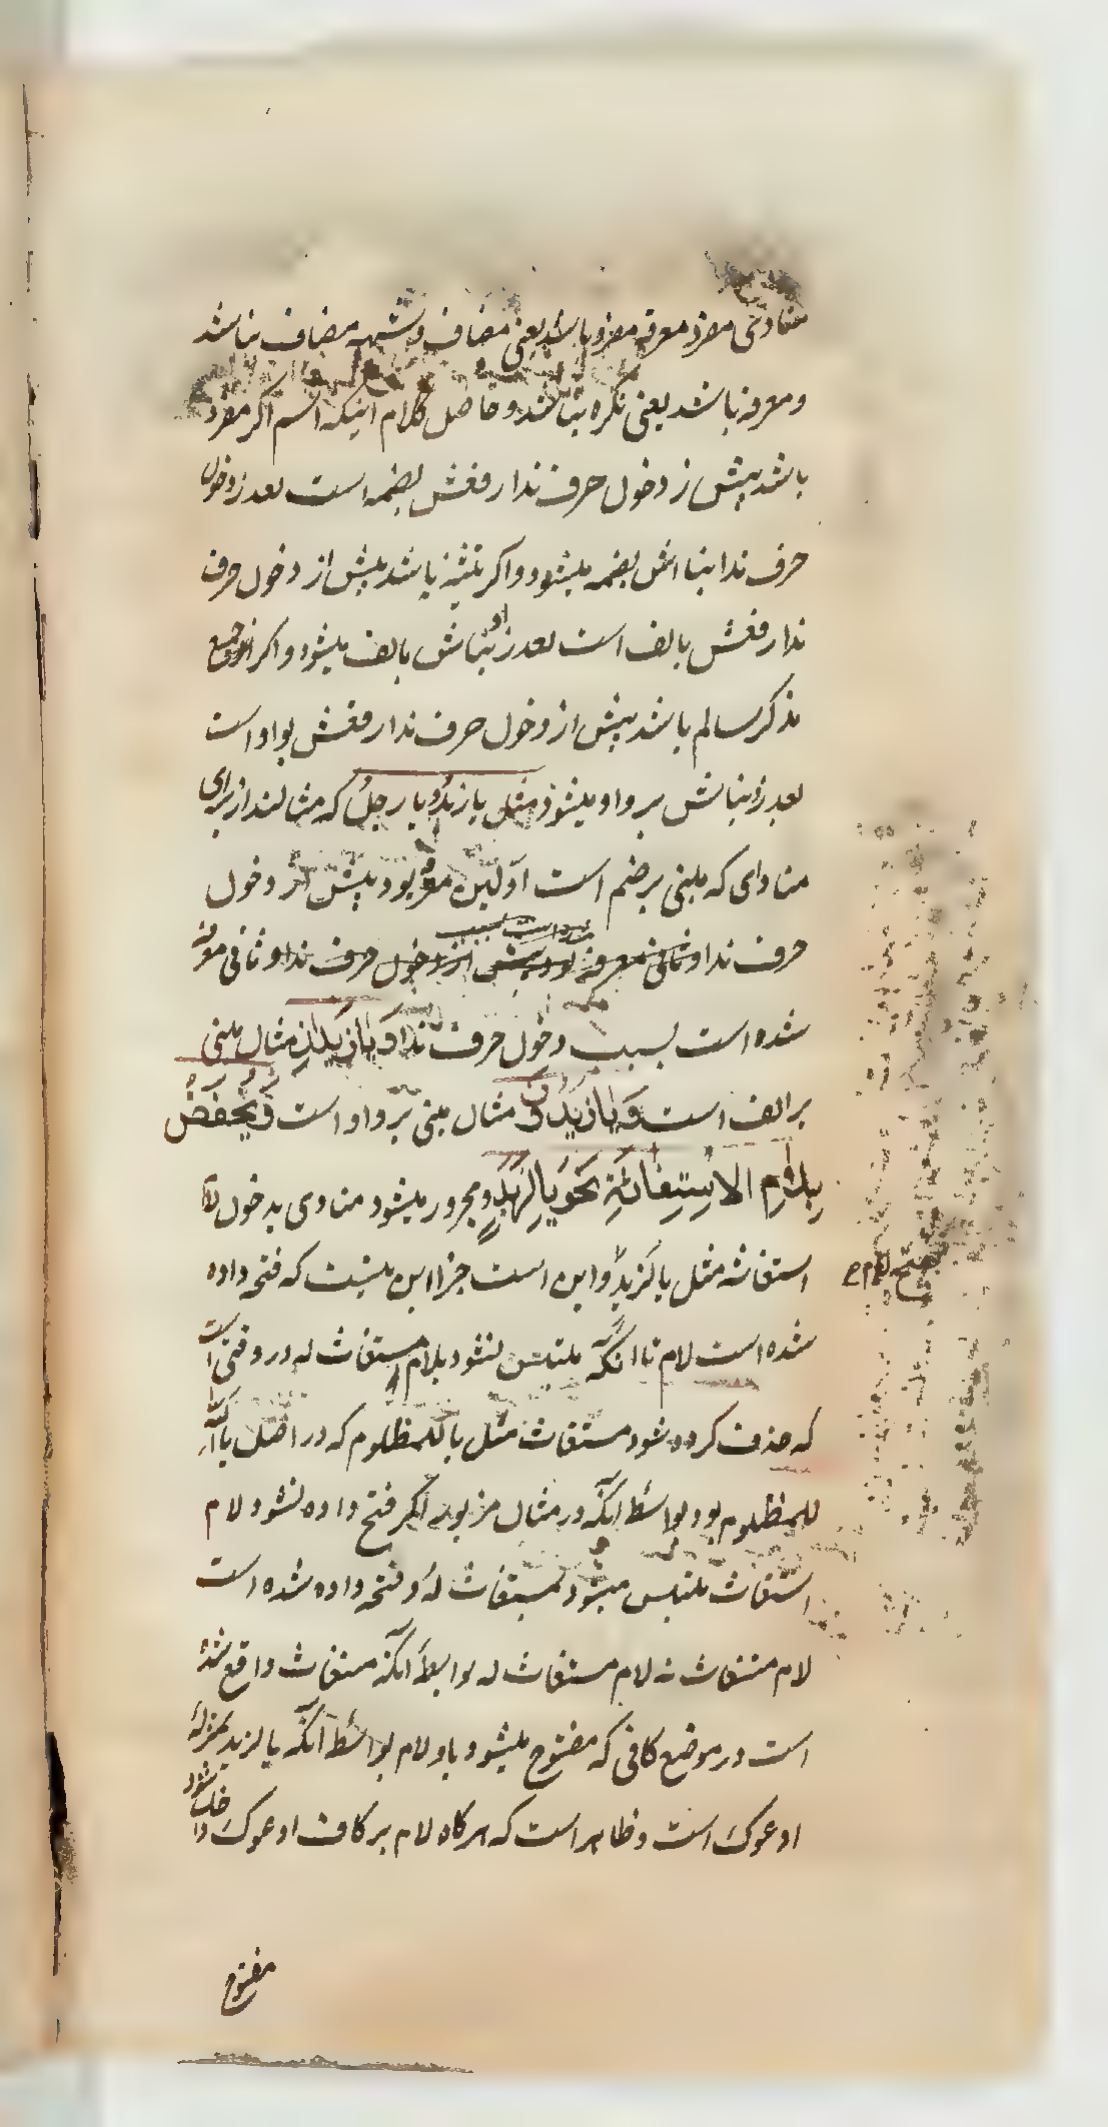 منادی مفرد معرفه مفرد باشد یعنی مضاف و شبهه مضاف نباشد
و معرفه باشد یعنی نکره نباشد و حاصل کلام اینکه اسم اگر مفرد
باشد پیش از دخول حرف ندا رفعش بضمه است بعد از دخول
حرف ندا بنااش بضمه میشود و اگر تثنیه باشد پیش از دخول حرف
ندا رفعش بالف است بعد از او بنااش بالف میشود و اگر جمع
مذکر سالم باشد پیش از دخول حرف ندا رفعش بواو است
بعد از بنااش بر واو میشود مثل یا زیدُ و یا رجلُ که مثالند از برای
منادای که مبنی بر ضم است اولین معرفه بود پیش از دخول
حرف ندا و ثانی معرفه بود پیش از دخول حرف ندا و ثانی معرفه
شده است بسبب دخول حرف ندا و یا زیدانِ مثال مبنی
بر الف است وَ یا زیدونَ مثال مبنی بر واو است وَ یُخفَضُ
بِلامِ الاستِغاثَةِ نَحوُ یا لَزَیدٍ و مجرور میشود منادی بدخول لام
استغاثه مثل یا لَزیدٍ و این است جز این نیست که فتحه داده
بفتح لام
شده است لام تا انکه ملتبس نشود بلام مستغاث له در وقتی است
که حذف کرده شود مستغاث مثل یا للمظلوم که در اصل یا لله
للمظلوم بود بواسطهٔ انکه در مثال مزبور اگر فتح داده نشود لام
استغاث ملتبس میشود بمستغاث لهُ و فتحه داده شده است
لام مستغاث نه لام مستغاث له بواسطهٔ انکه مستغاث واقع شده
است در موضع کافی که مفتوح میشود باو لام بواسطهٔ انکه یا لزید بمنزلهٔ
ادعوک است و ظاهر است که هرگاه لام بر کاف ادعوک داخل شود
مفتوح